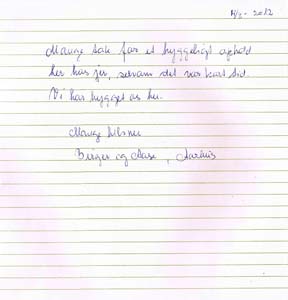 - 2012
Mange tak for et hyggeligt ophold
her hos jer, selvom det var kort tid.
Vi har hygget os her.
Mange hilsner
Birger og Aase, Aarhus